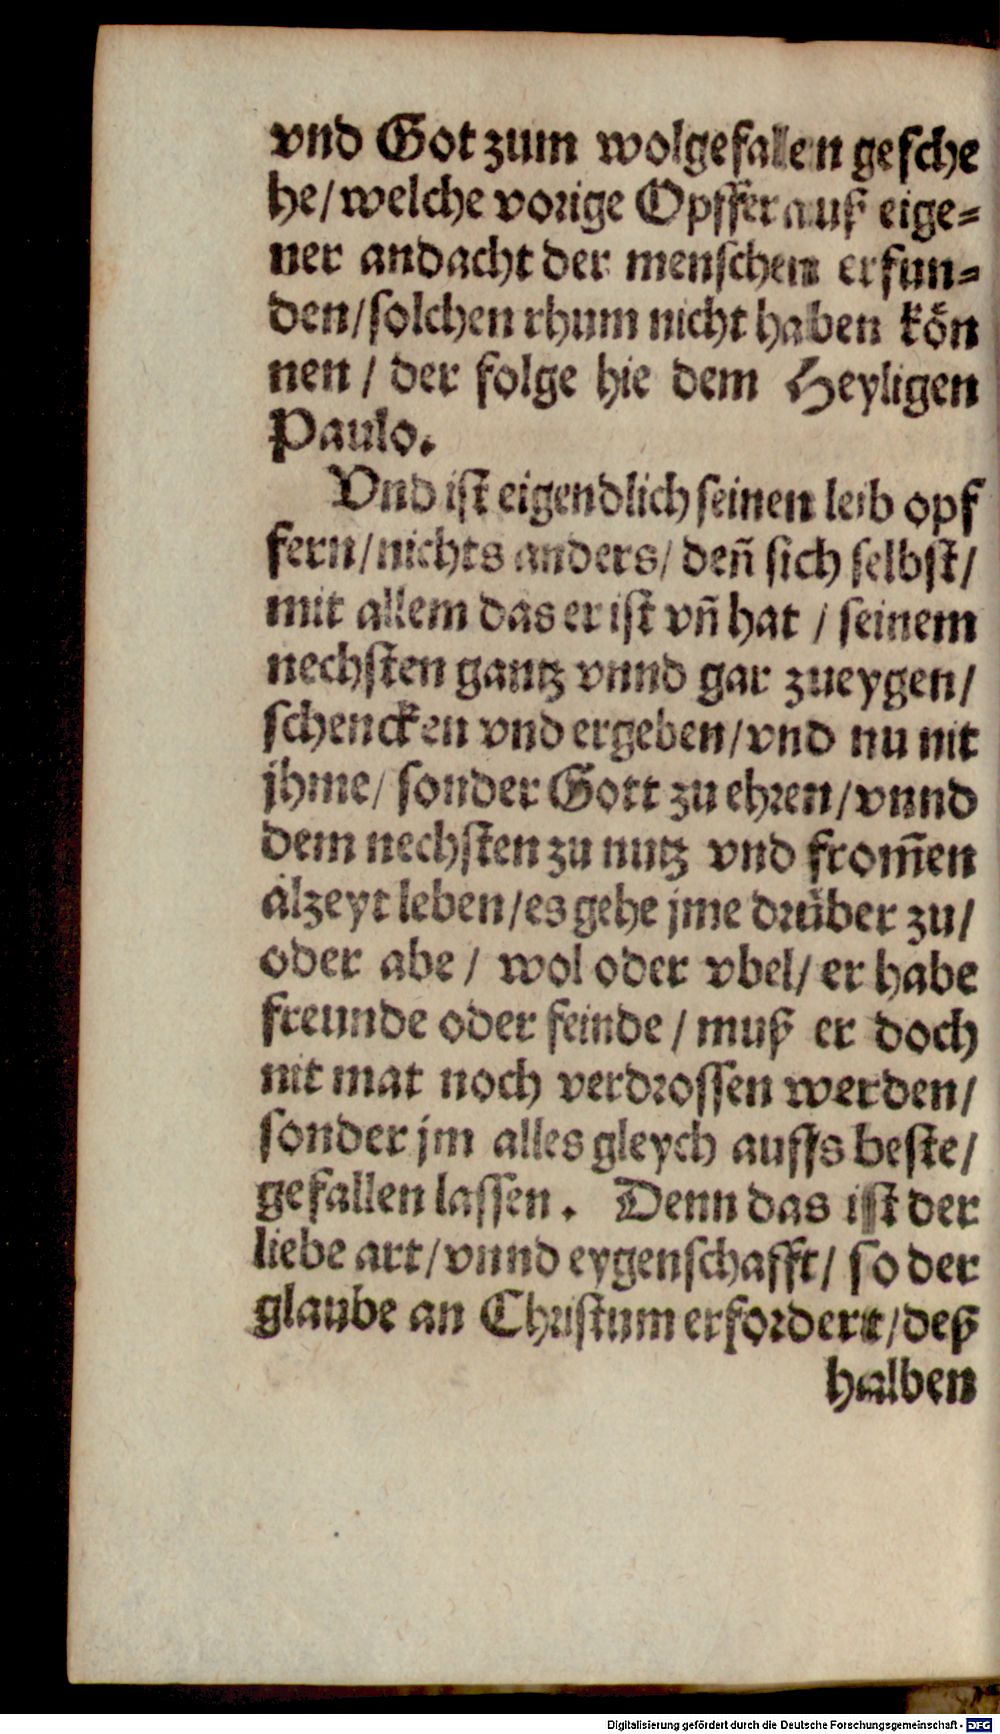 vnd Got zum wolgefallen gesche
he/ welche vorige Opffer auß eige=
ner andacht der menschen erfun=
den/ solchen rhum nicht haben kön
nen / der folge hie dem Heyligen
Paulo.
Vnd ist eigendlich seinen leib opf
fern/ nichts anders/ deñ sich selbst/
mit allem das er ist vñ hat / seinem
nechsten gantz vnnd gar zueygen/
schencken vnd ergeben/ vnd nu nit
jhme/ sonder Gott zu ehren/ vnnd
dem nechsten zu nutz vnd from̃en
alzeyt leben/ es gehe jme drüber zu/
oder abe / wol oder vbel/ er habe
freunde oder feinde / muß er doch
nit mat noch verdrossen werden/
sonder jm alles gleych auffs beste/
gefallen lassen. Denn das ist der
liebe art/ vnnd eygenschafft/ so der
glaube an Christum erfordert/ deß
halben
Digitalisierung gefördert durch die Deutsche Forschungsgemeinschaft - DFG